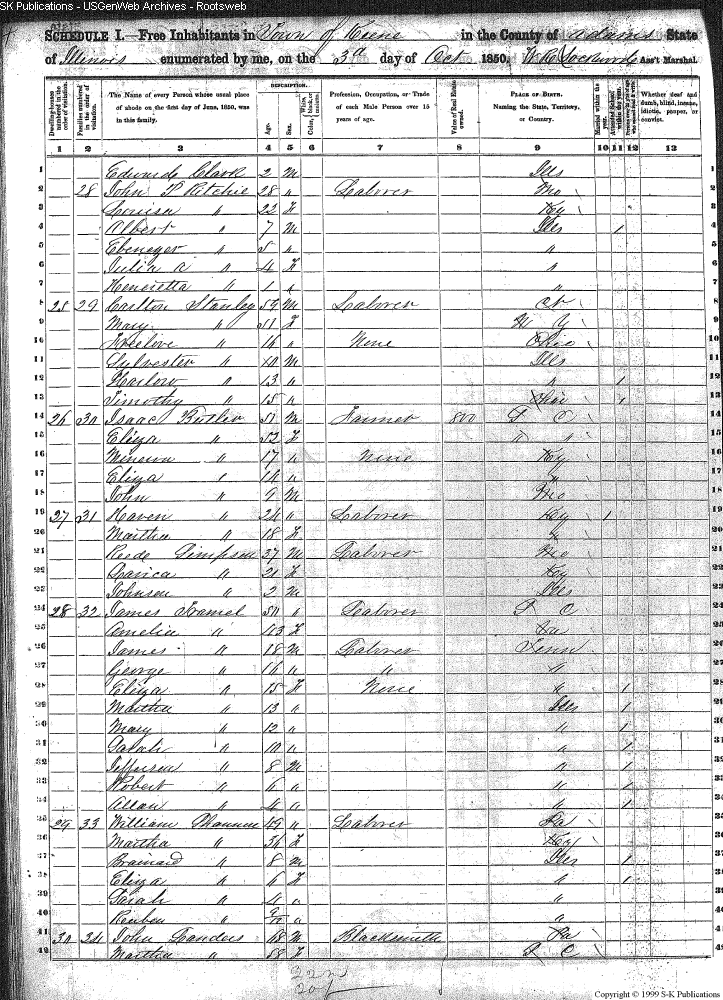 SK Publications - USGenWeb Archives - Rootsweb
SCHEDULE I.—Free Inhabitants in Town of Keene in the County of Adams State
of Illinois enumerated by me, on the 3d day of Oct 1850. Ass't Marshal.
Dwelling-houses numbered in the order of visitation. Families numbered in the order of visitation. The Name of every Person whose usual place of abode on the first day of June, 1850, was in this family. DESCRIPTION. Age. Sex. Color, White, black, or mulatto. Profession, Occupation, or Trade of each Male Person over 15 years of age. Value of Real Estate owned. PLACE OF BIRTH. Naming the State, Territory, or Country. Married within the year. Attended School within the year. Persons over 20 y'rs of age who cannot read & write. Whether deaf and dumb, blind, insane, idiotic, pauper, or convict.
1 2 3 4 5 6 7 8 9 10 11 12 13
1 Edward Clark 2 M Ills
2 28 John P Ritchie 28 " Laborer Mo
3 Louisa " 22 F Ky
4 Albert " 7 M Ills /
5 Ebenezer " 5 " "
6 Julia A " 4 F "
7 Henrietta " 1 " "
8 25 29 Carlton Stanley 59 M Laborer Ct
9 Mary " 51 F N Y
10 Freelove " 16 " None Ohio
11 Sylvester " 10 M Ills
12 Harlow " 13 " " /
13 Timothy " 15 " Ohio /
14 26 30 Isaac Butler 51 M Farmer 800 S C
15 Eliza " 52 F " "
16 " 17 " None Ky
17 Eliza " 14 " "
18 John " 9 M Mo
19 27 31 Haven " 24 " Laborer Ky /
20 Martha " 18 F "
21 Reede Simpson 37 M Laborer Mo
22 " 21 F Ky
23 Johnson " 2 M Ills
24 28 32 James Tramel 50 " Laborer S C
25 Amelia " 43 F
26 James " 18 M Laborer Tenn
27 George " 16 " " "
28 Eliza " 15 F None " /
29 Martha " 13 " Ills /
30 Mary " 12 " " /
31 Sarah " 10 " " /
32 Jefferson " 8 M " /
33 Robert " 6 " " /
34 Allan " 4 " " /
35 29 33 William 49 " Laborer Pa
36 Martha " 34 F Ky
37 Brainard " 8 M Ills /
38 Eliza " 6 F " /
39 Sarah " 4 " "
40 Reuben " "
41 30 34 John Landers 68 M Blacksmith
42 Martha " 58 F S C
22 m
20 f
Copyright © 1999 S-K Publications